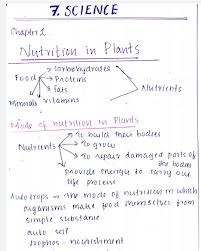 7. SCIENCE
Chapter 1
Nutrition in Plants
Carbohydrates
Food Proteins
fats Nutrients
Minerals vitamins
Mode of nutrition in Plants
To build their bodies
Nutrients To grow
To repair damaged parts of
the bodies
provide energy to carry out
life process
Autotrops → the mode of nutrition in which
organisms make food themselves from
simple substance
auto self
trophos - nourishment